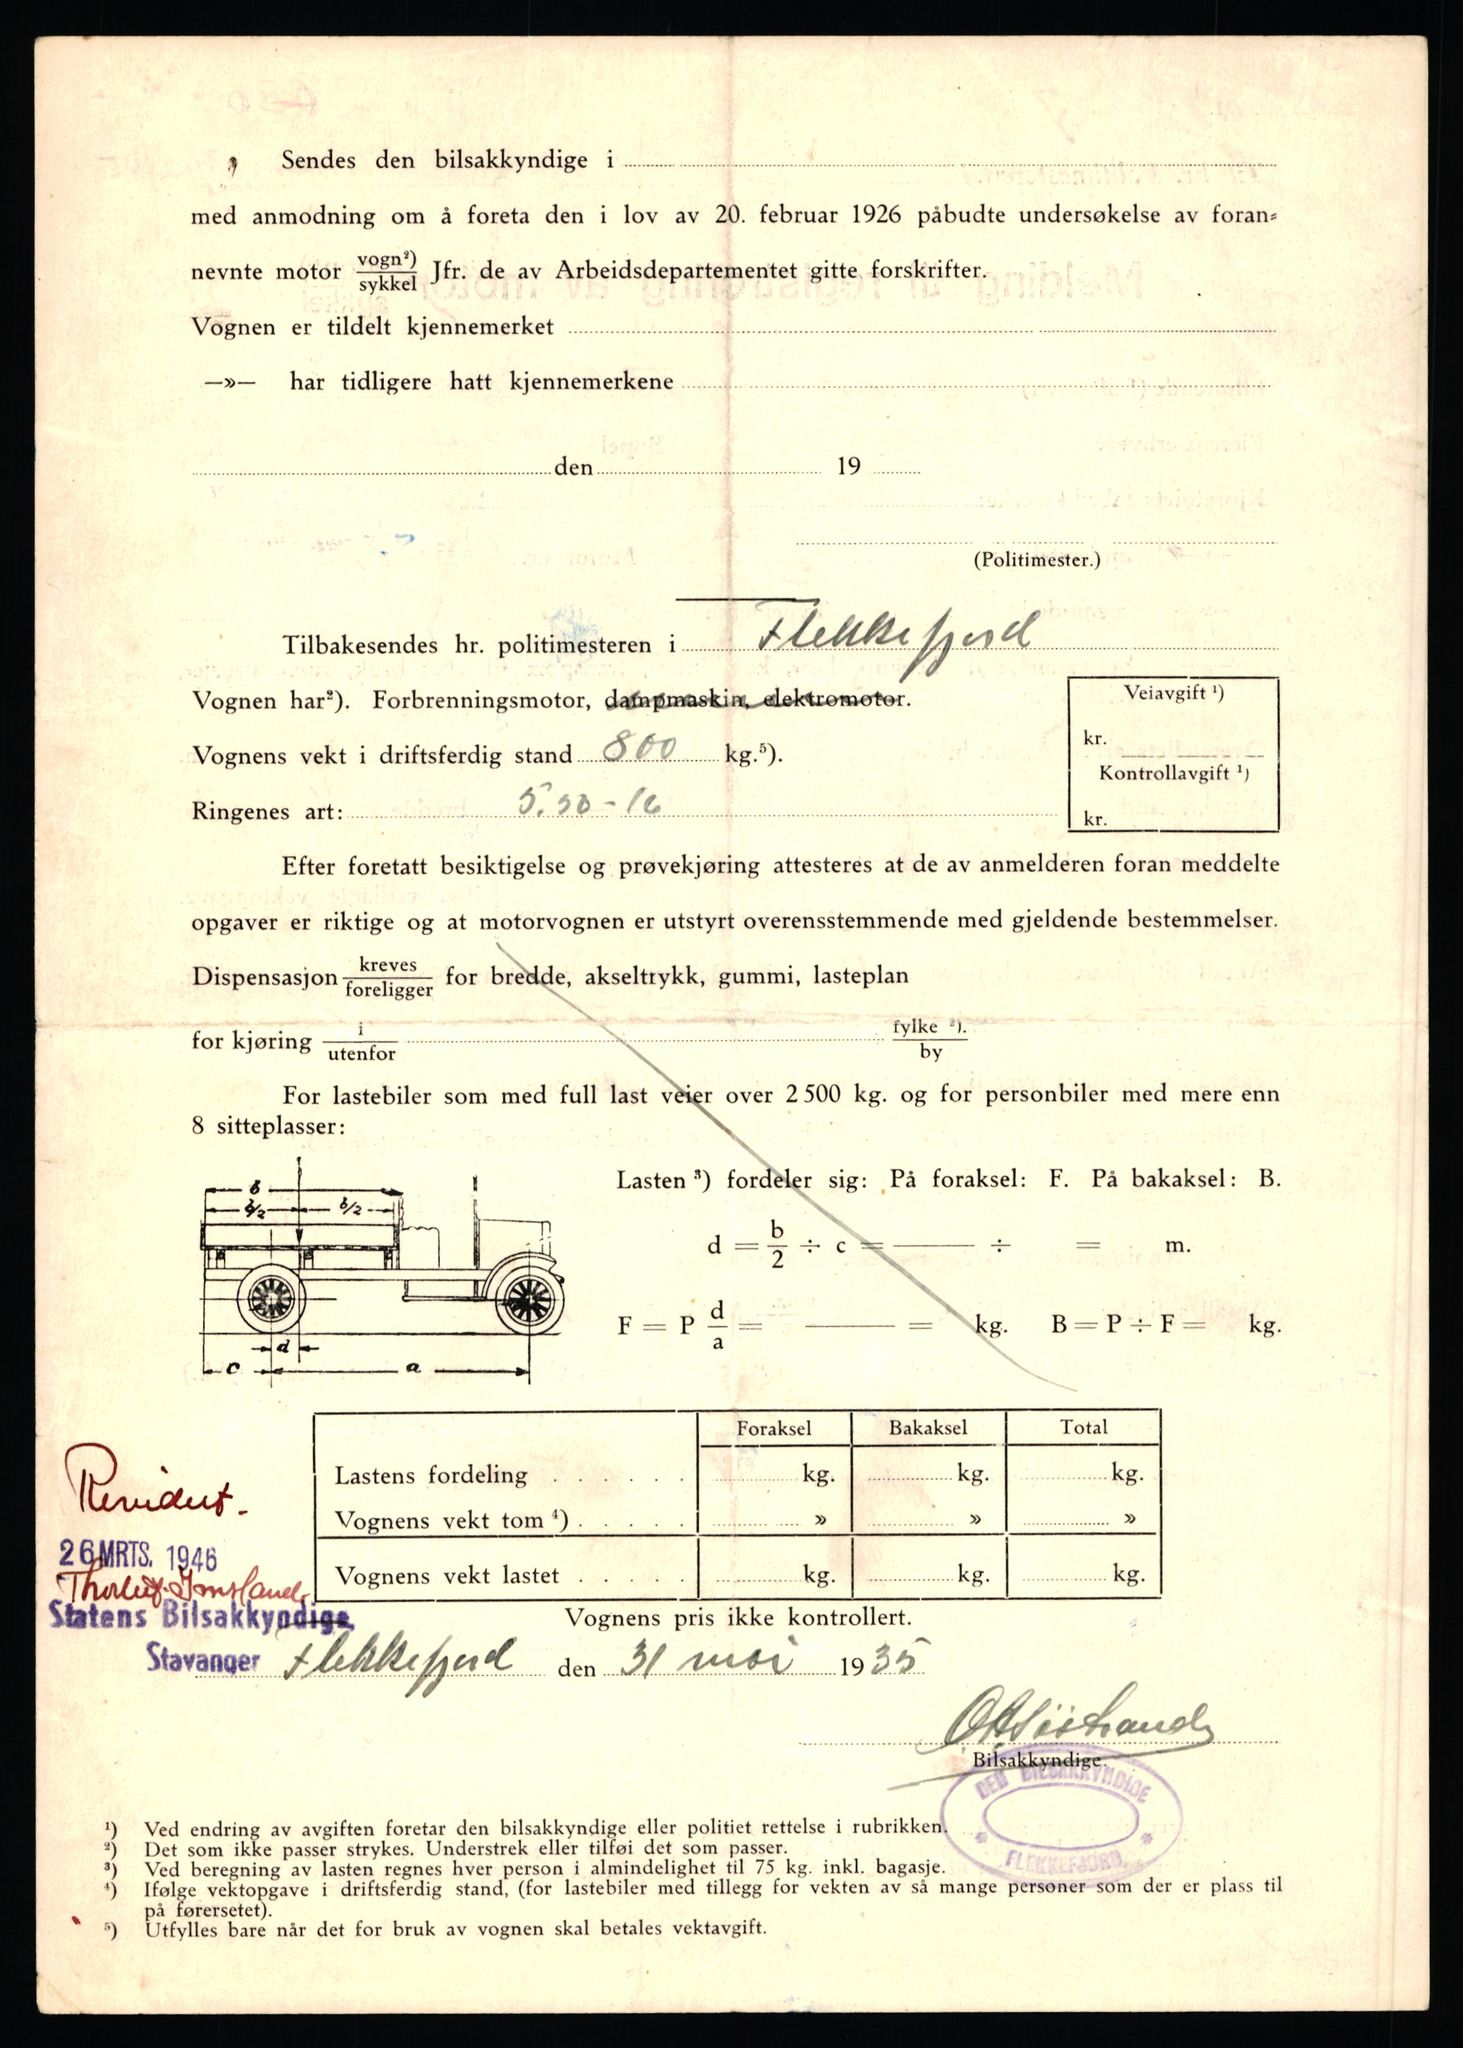 Sendes den bilsakkyndige i
med anmodning om å foreta den i lov av 20. februar 1926 påbudte undersøkelse av foran=
nevnte motor vogn²) / sykkel Jfr. de av Arbeidsdepartementet gitte forskrifter.
Vognen er tildelt kjennemerket
—»— har tidligere hatt kjennemerkene
den 19
(Politimester.)
Tilbakesendes hr. politimesteren i Flekkefjord
Vognen har²). Forbrenningsmotor, dampmaskin, elektromotor.
Veiavgift ¹)
kr.
Vognens vekt i driftsferdig stand 800 kg.⁵).
Kontrollavgift ¹)
Ringenes art: 5.50-16
kr.
Efter foretatt besiktigelse og prøvekjøring attesteres at de av anmelderen foran meddelte
opgaver er riktige og at motorvognen er utstyrt overensstemmende med gjeldende bestemmelser.
Dispensasjon kreves / foreligger for bredde, akseltrykk, gummi, lasteplan
for kjøring i / utenfor fylke ²). / by
For lastebiler som med full last veier over 2 500 kg. og for personbiler med mere enn
8 sitteplasser:
b
b/2 b/2
d
c a
Lasten ³) fordeler sig: På foraksel: F. På bakaksel: B.
d = b/2 ÷ c = ——— ÷ = m.
F = P d/a = ——— = kg. B = P ÷ F = kg.
Foraksel Bakaksel Total
Lastens fordeling . . . . . . kg. kg. kg.
Vognens vekt tom ⁴) . . . . . » » »
Vognens vekt lastet . . . . . kg. kg. kg.
Revidert.
26 MRTS. 1946
Statens Bilsakkyndige
Stavanger
Vognens pris ikke kontrollert.
Flekkefjord den 31 mai 1935
Bilsakkyndige.
DEN BILSAKKYNDIGE
* FLEKKEFJORD. *
¹) Ved endring av avgiften foretar den bilsakkyndige eller politiet rettelse i rubrikken.
²) Det som ikke passer strykes. Understrek eller tilføi det som passer.
³) Ved beregning av lasten regnes hver person i almindelighet til 75 kg. inkl. bagasje.
⁴) Ifølge vektopgave i driftsferdig stand, (for lastebiler med tillegg for vekten av så mange personer som der er plass til
på førersetet).
⁵) Utfylles bare når det for bruk av vognen skal betales vektavgift.